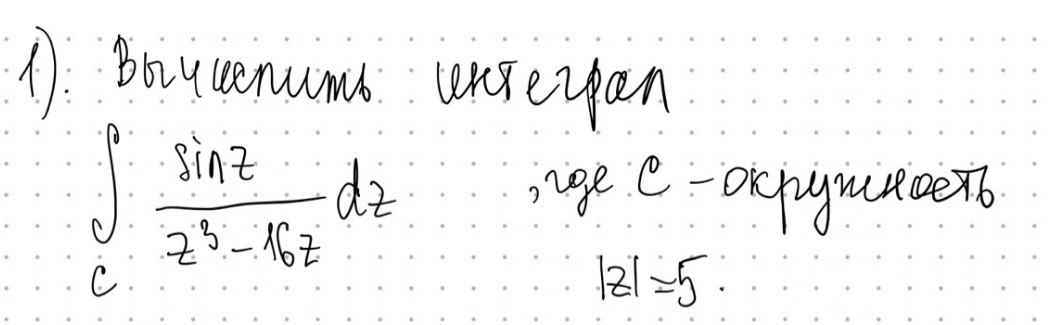 1). Вычислить интеграл
∫_C sinz / (z³ - 16z) dz , где C - окружность
|z| = 5.